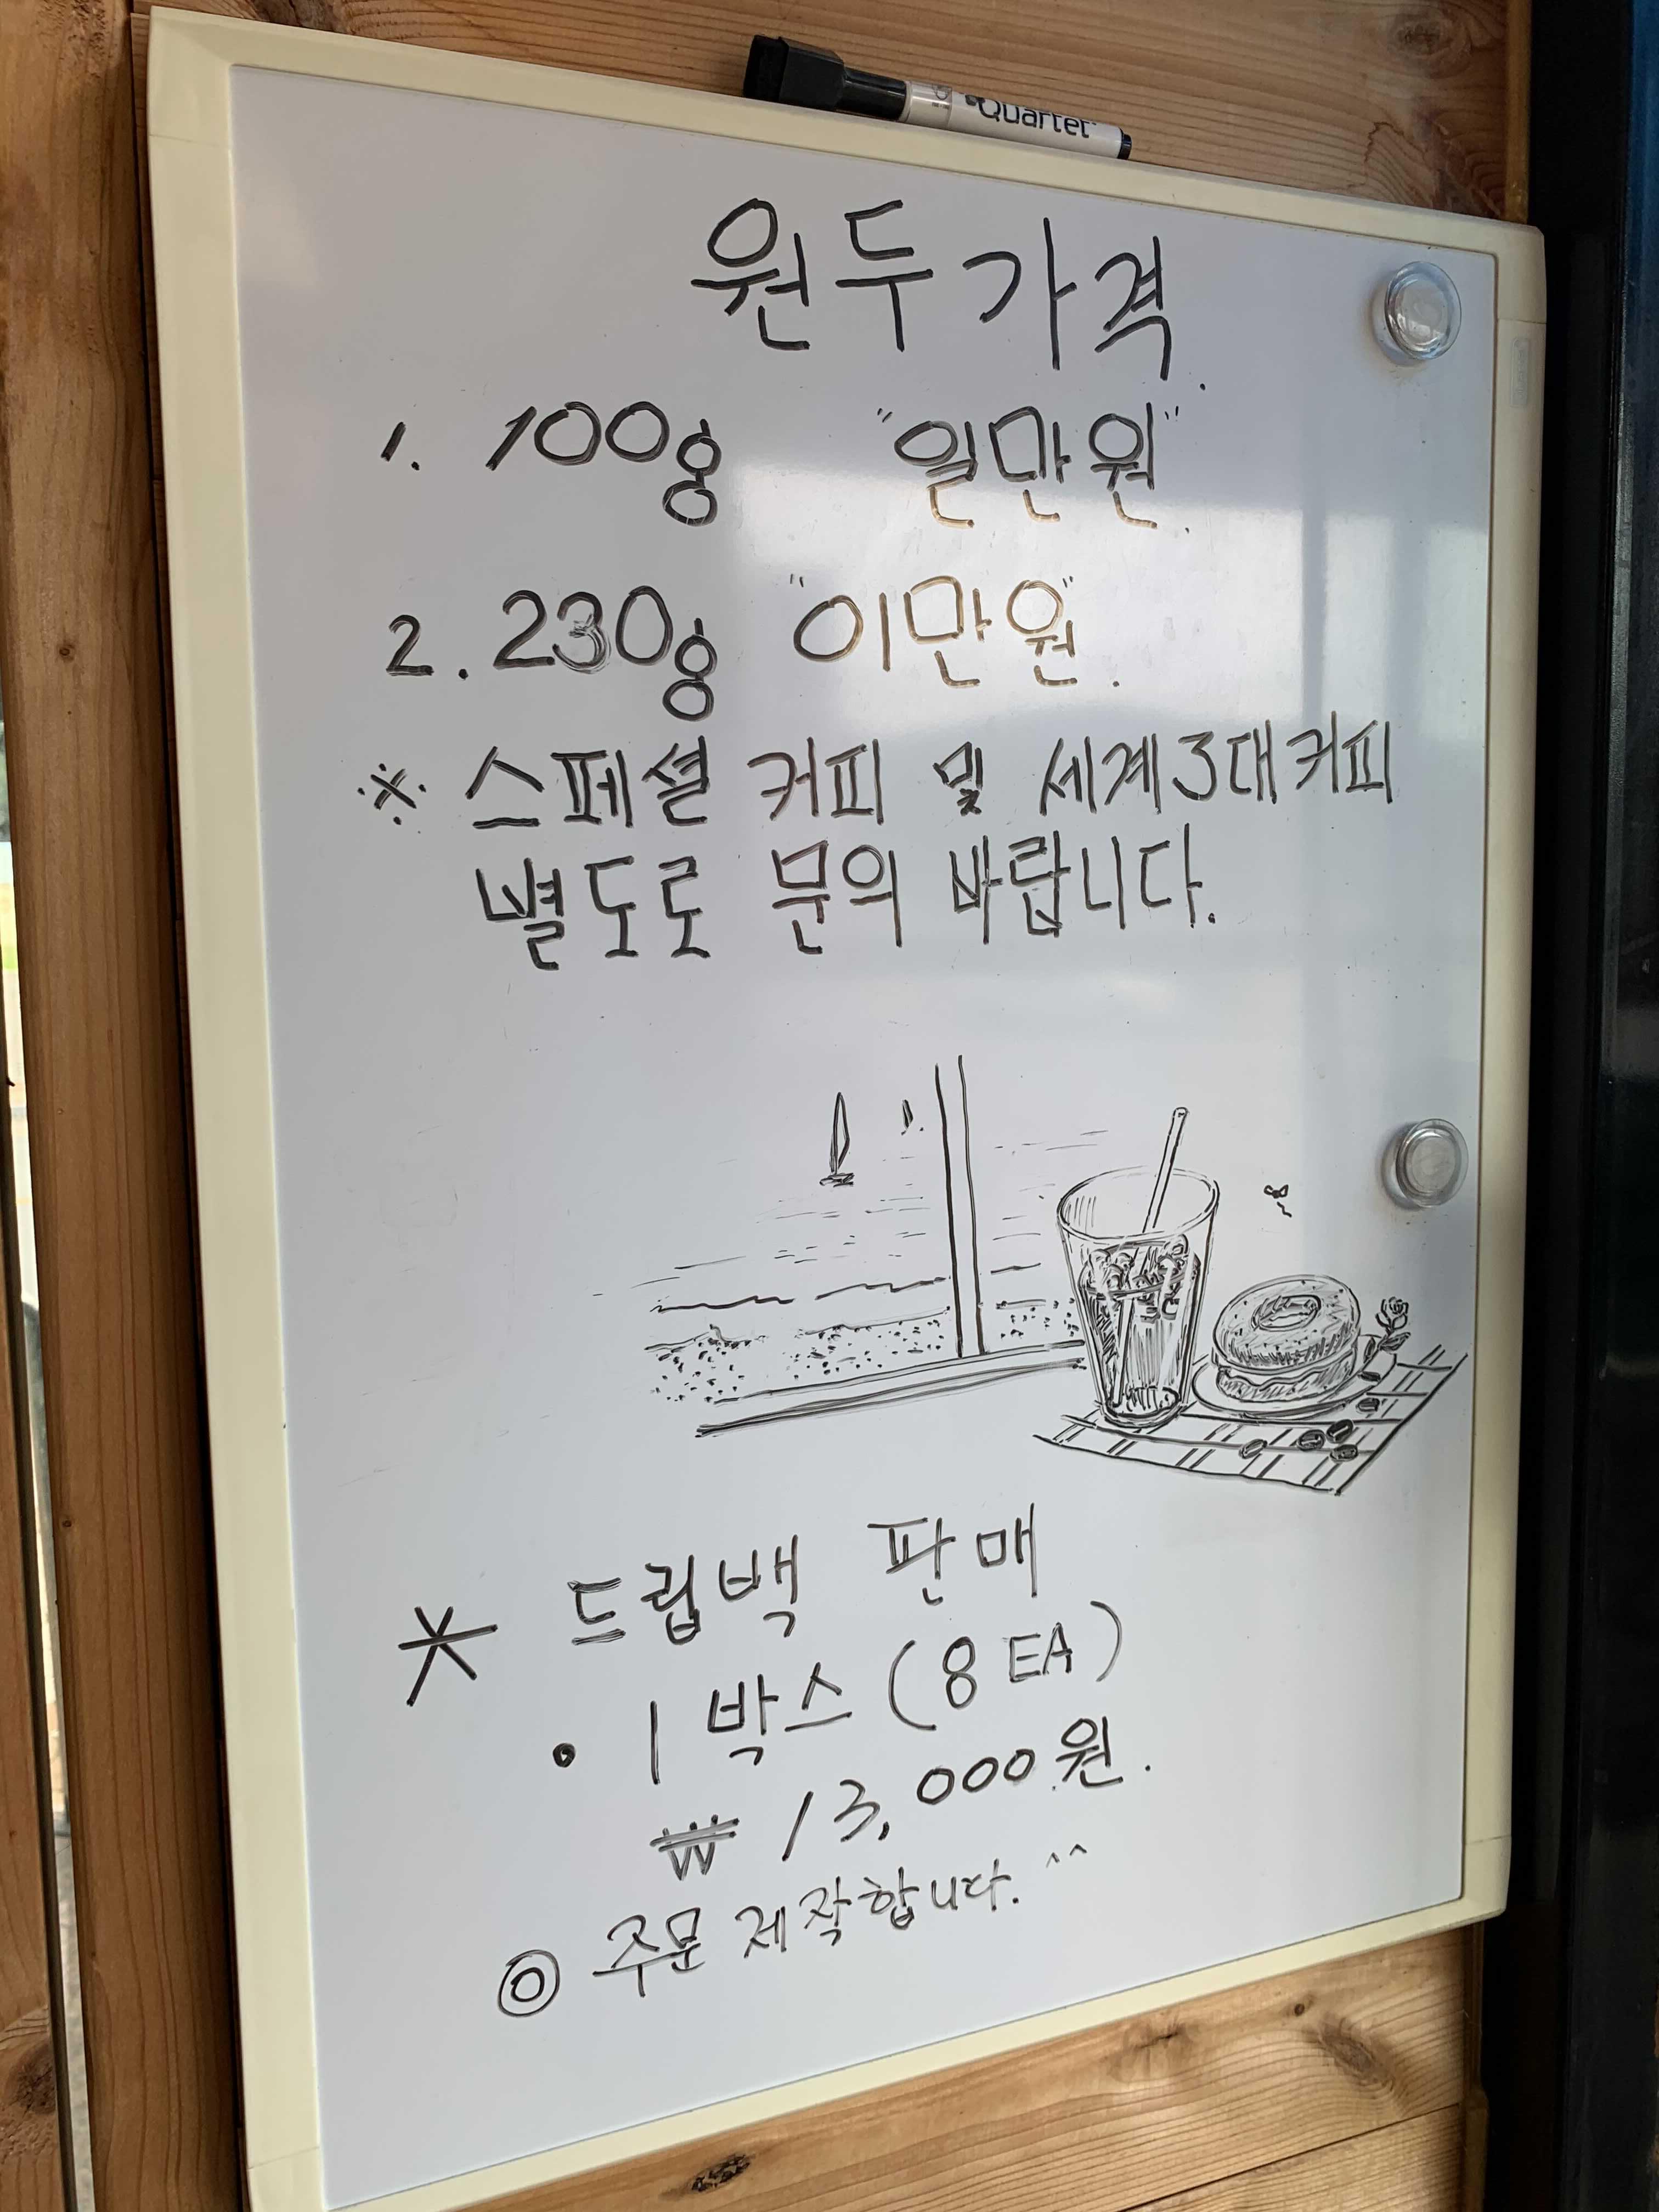 Quartet
원두가격.
1. 100g "일만원".
2. 230g "이만원".
※ 스페셜 커피 및 세계3대커피
별도로 문의 바랍니다.
* 드립백 판매
• 1 박스 (8 EA)
₩ 13,000원.
◎ 주문 제작합니다. ^^